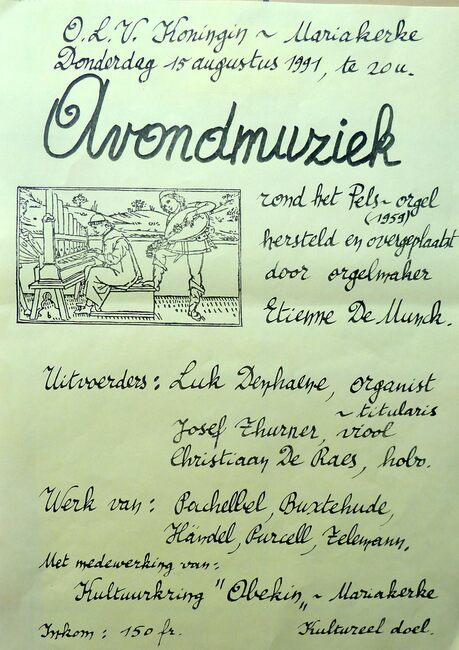 O.L.V. Koningin ~ Mariakerke
Donderdag 15 augustus 1991, te 20u.
Avondmuziek
rond het Pels~orgel
(1959)
hersteld en overgeplaatst
door orgelmaker
Etienne De Munck.
Uitvoerders: Luk Denhaene, organist
~titularis
Josef Thurner, viool
Christiaan De Raes, hobo.
Werk van: Pachelbel, Buxtehude,
Händel, Purcell, Telemann.
Met medewerking van:
Kultuurkring "Obekin" ~ Mariakerke
Inkom: 150 fr.
Kultureel doel.